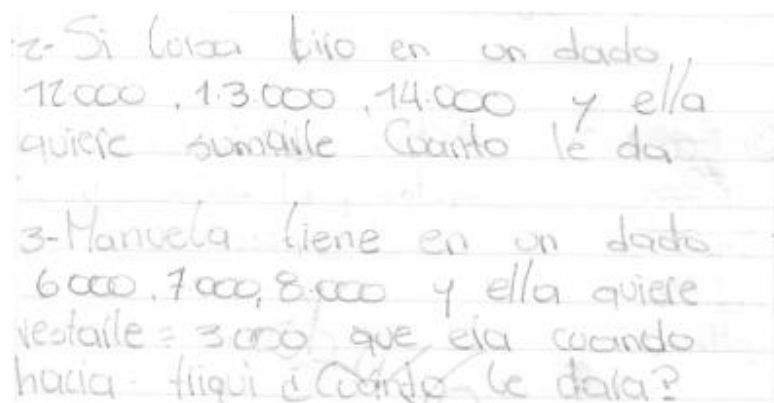 2- Si Luisa tiro en un dado,
12000, 13.000, 14.000 y ella
quiere sumarle Cuanto le da
3-Manuela tiene en un dado
6000, 7000, 8.000 y ella quiere
restarle = 3000 que era cuando
hacia triqui ¿Cuánto le dara?